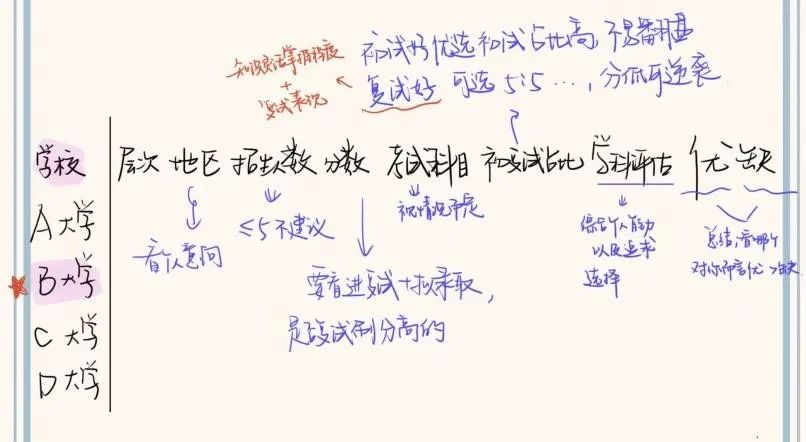 初试好 优选 初试占比高,不易翻盘
复试好 可选 5:5 …,分低可逆袭
知识点掌握程度
+
复试表现
学校 层次 地区 招生人数 分数 考试科目 初复试占比 学科评估 优 缺
看个人意向
≤5不建议
视情况而定
要看进复试+拟录取,
是否复试刷分高的
综合个人能力
以及追求
选择
总结,看哪个
对你而言优>缺
A大学
B大学
C大学
D大学